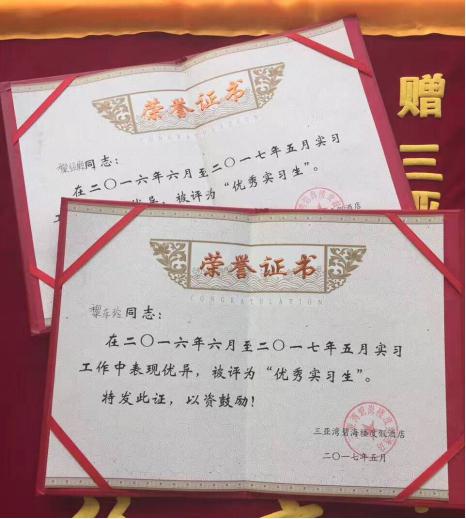 赠三亚
荣誉证书
CONGRATULATION
同志：
在二〇一六年六月至二〇一七年五月实习
优异，被评为“优秀实习生”。
荣誉证书
CONGRATULATION
同志：
在二〇一六年六月至二〇一七年五月实习
工作中表现优异，被评为“优秀实习生”。
特发此证，以资鼓励！
三亚湾碧海楼度假酒店
二〇一七年五月